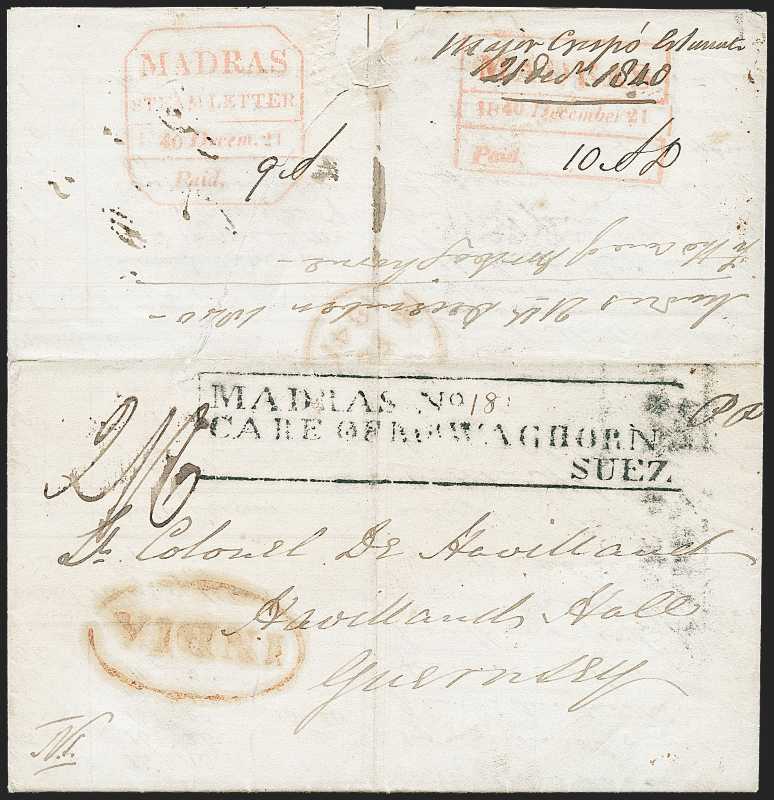 MADRAS
STEAM LETTER
1840 Decem. 21
Paid.
9 A
Major Crespó
21 Decr 1840
1840 December 21
Paid.
10 A P
Madras 21th December 1840
MADRAS No 18
CARE OF Mr WAGHORN
SUEZ
2/6
Lt Colonel De Havilland
Havillands Hall
Guernsey
INDIA